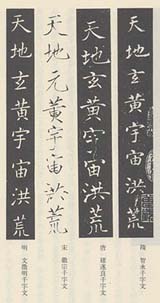 天地玄黃宇宙洪荒
隋 智永千字文
天地玄黃宇宙洪荒
唐 褚遂良千字文
天地元黃宇宙洪荒
宋 徽宗千字文
天地玄黃宇宙洪荒
明 文徵明千字文